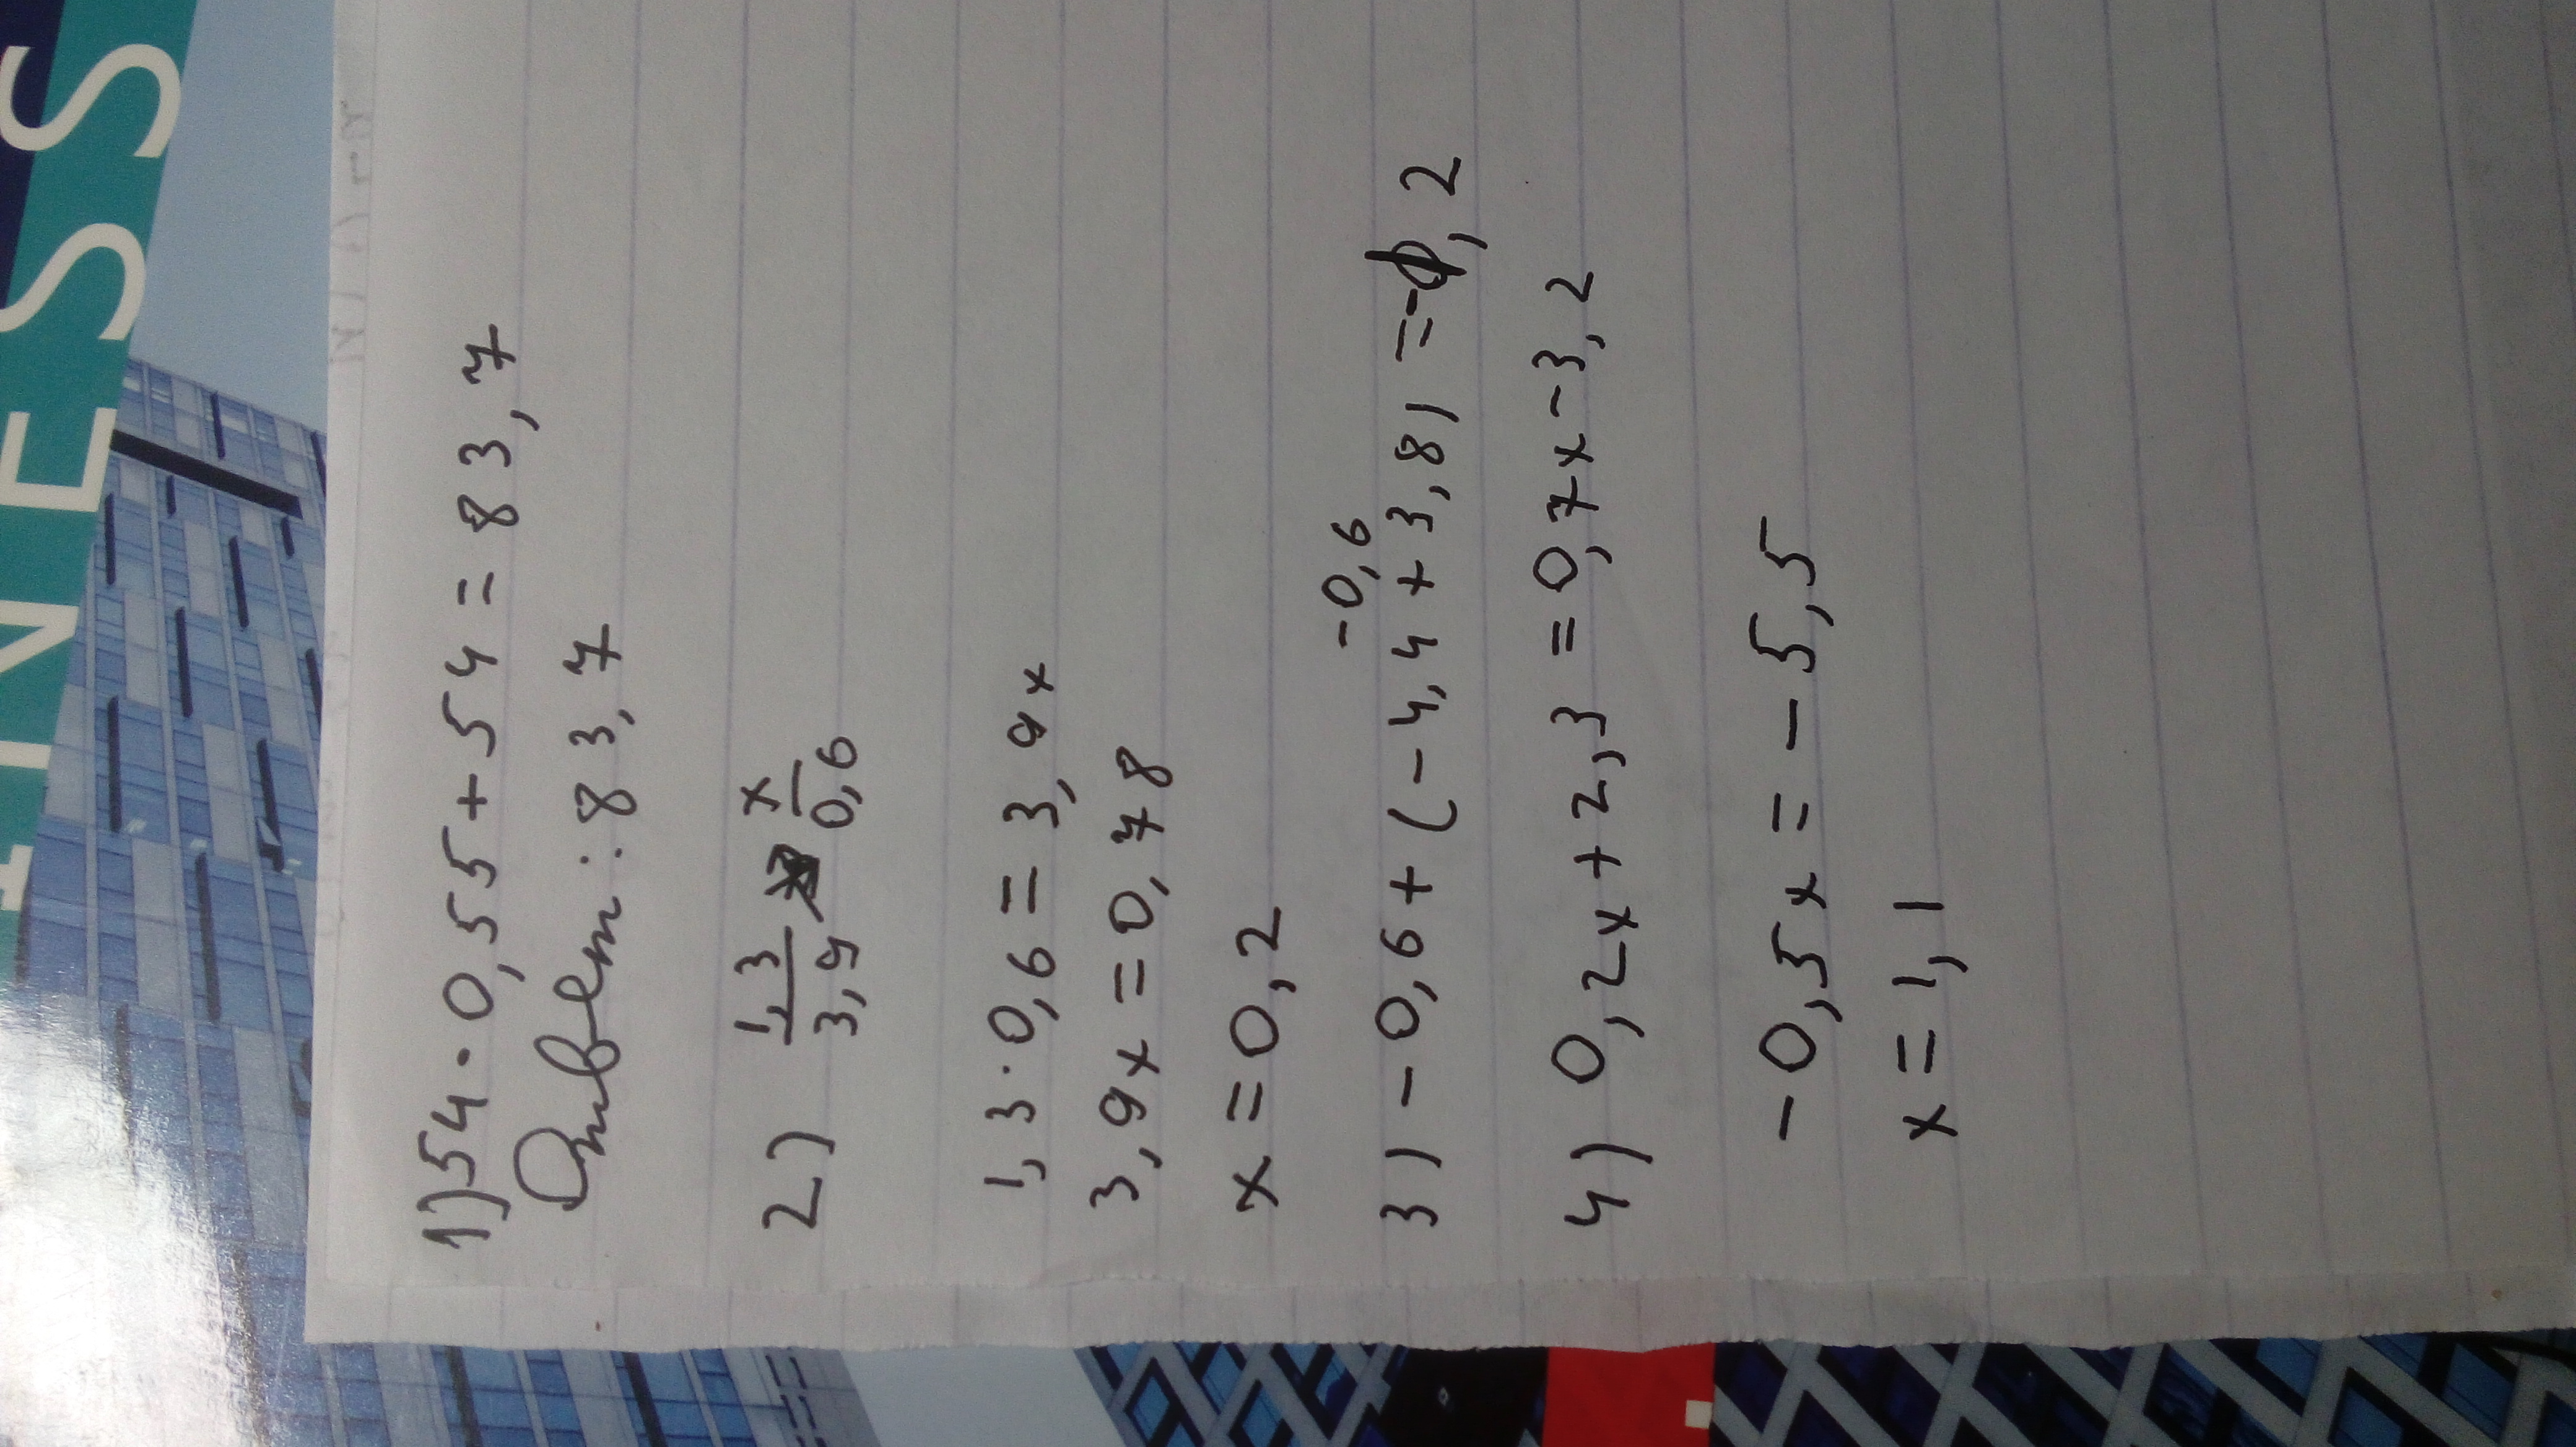 INESS
1) 54 · 0,55 + 54 = 83,7
Ответ: 83,7
2) 1,3/3,9 x/0,6
1,3 · 0,6 = 3,9x
3,9x = 0,78
x = 0,2
-0,6
3) -0,6 + (-4,4 + 3,8) = -1,2
4) 0,2x + 2,3 = 0,7x - 3,2
-0,5x = -5,5
x = 1,1